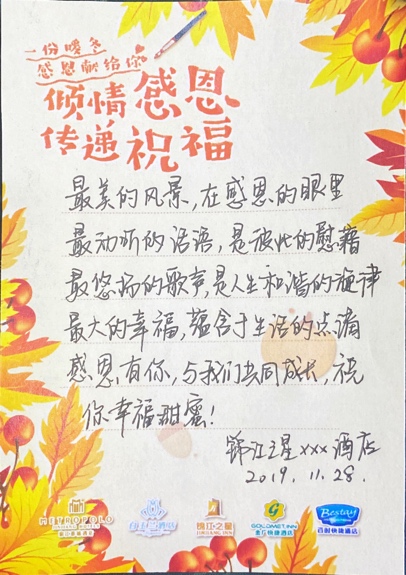 一份暖冬
感恩献给你
倾情感恩
传递祝福
最美的风景,在感恩的眼里
最动听的话语,是彼此的慰藉
最悠扬的歌声,是人生和谐的旋律
最大的幸福,蕴含于生活的点滴
感恩有你,与我们共同成长,祝
你幸福甜蜜!
锦江之星xxx酒店
2019.11.28.
METROPOLO
锦江之星
JINJIANG INN
GOLDMET INN
金广快捷酒店
Bestay
百时快捷酒店